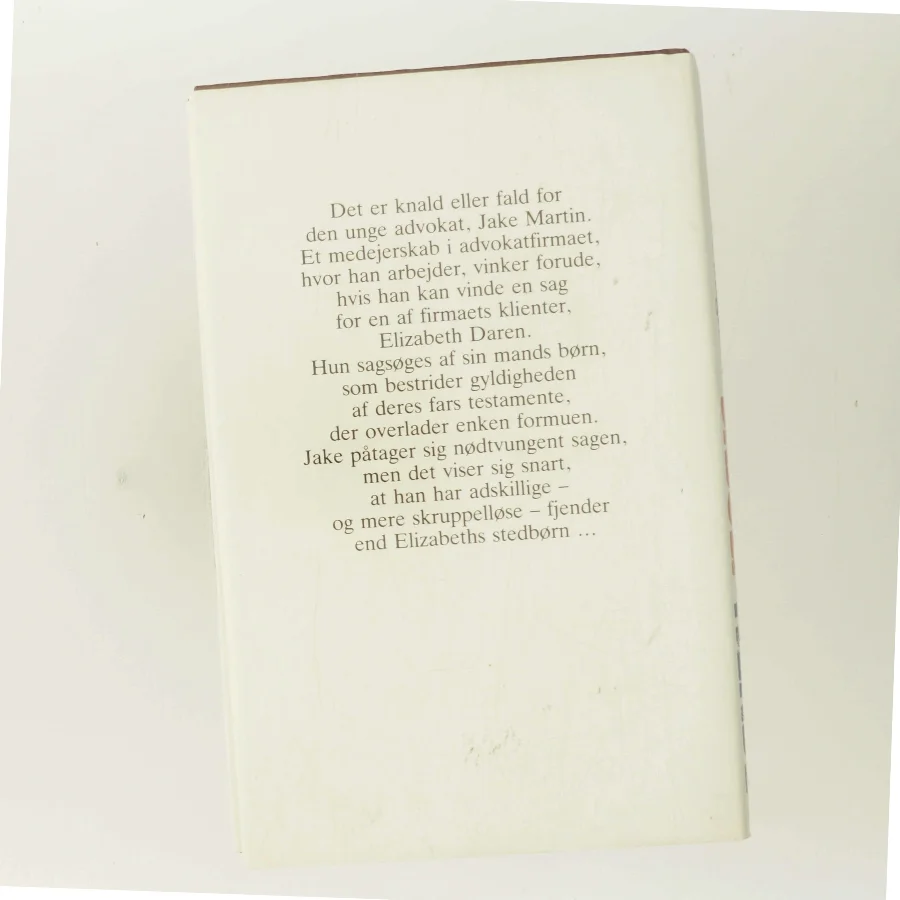 Det er knald eller fald for
den unge advokat, Jake Martin.
Et medejerskab i advokatfirmaet,
hvor han arbejder, vinker forude,
hvis han kan vinde en sag
for en af firmaets klienter,
Elizabeth Daren.
Hun sagsøges af sin mands børn,
som bestrider gyldigheden
af deres fars testamente,
der overlader enken formuen.
Jake påtager sig nødtvungent sagen,
men det viser sig snart,
at han har adskillige –
og mere skruppelløse – fjender
end Elizabeths stedbørn ...